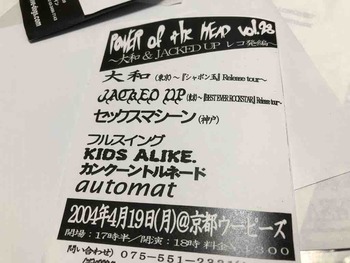 POWER of the HEAD vol.98
～大和 & JACKED UP レコ発編～
大和(東京)～『シャボン玉』Release tour～
JACKED UP(東京)～『BEST EVER ROCKSTAR』Release tour～
セックスマシーン(神戸)
フルスイング
KIDS ALIKE.
カンクーントルネード
automat
2004年4月19日(月)@京都ウーピーズ
開場：17時半／開演：18時 料金
300
問い合わせ) 075-551-